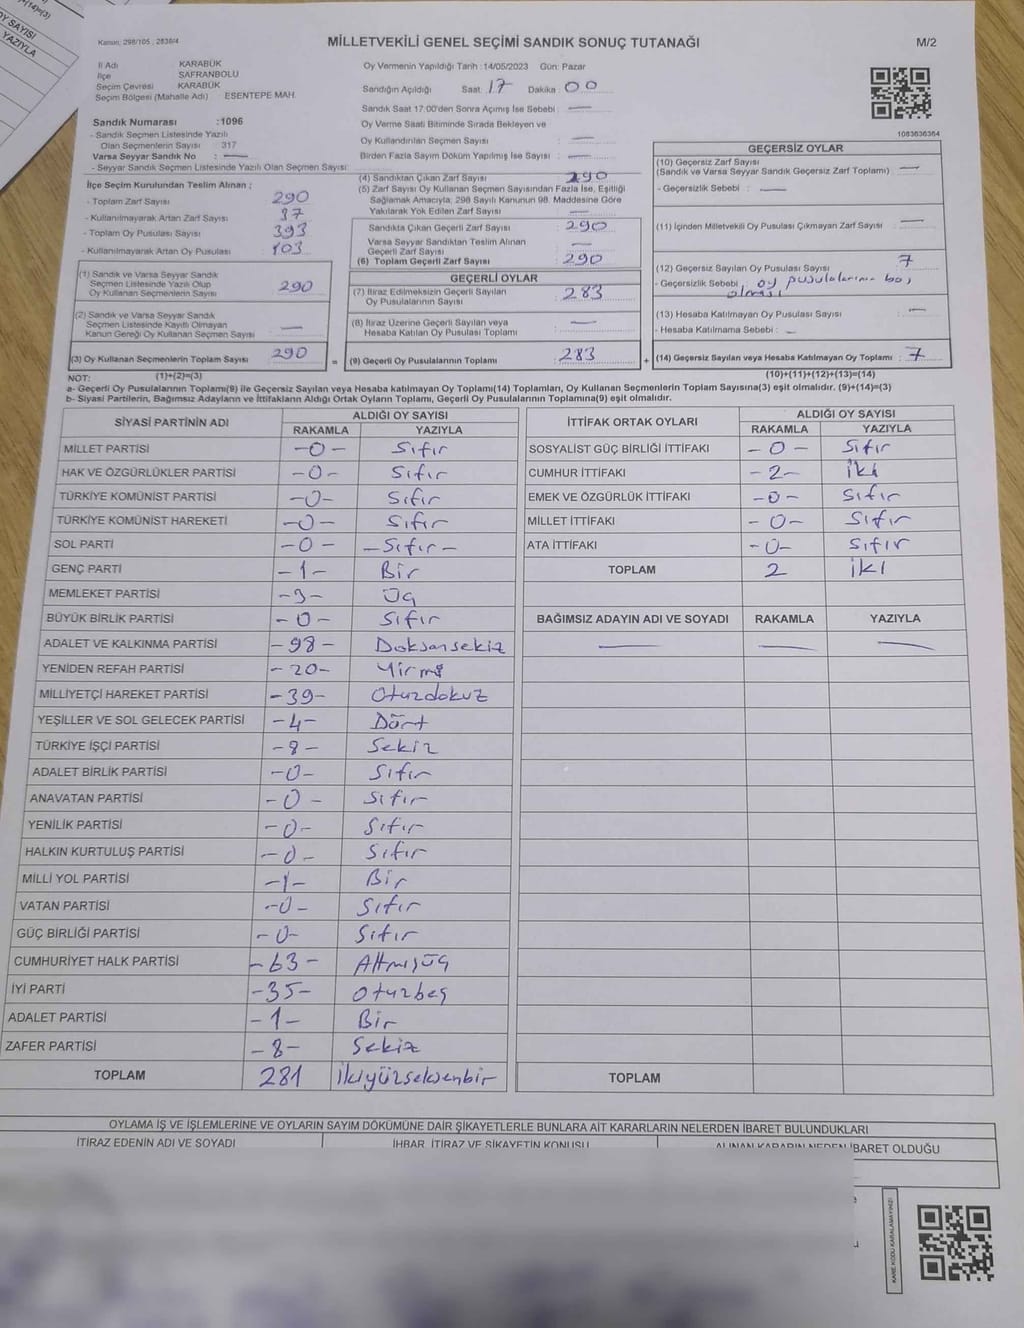 Kanun: 298/105 , 2839/4
MİLLETVEKİLİ GENEL SEÇİMİ SANDIK SONUÇ TUTANAĞI
M/2
İl Adı KARABÜK
İlçe SAFRANBOLU
Seçim Çevresi KARABÜK
Seçim Bölgesi (Mahalle Adı) : ESENTEPE MAH.
Sandık Numarası :1096
- Sandık Seçmen Listesinde Yazılı
Olan Seçmenlerin Sayısı : 317
Varsa Seyyar Sandık No : —
- Seyyar Sandık Seçmen Listesinde Yazılı Olan Seçmen Sayısı:
İlçe Seçim Kurulundan Teslim Alınan ;
- Toplam Zarf Sayısı 290
- Kullanılmayarak Artan Zarf Sayısı
- Toplam Oy Pusulası Sayısı 393
- Kullanılmayarak Artan Oy Pusulası : 103
(1) Sandık ve Varsa Seyyar Sandık
Seçmen Listesinde Yazılı Olup
Oy Kullanan Seçmenlerin Sayısı 290
(2) Sandık ve Varsa Seyyar Sandık
Seçmen Listesinde Kayıtlı Olmayan
Kanun Gereği Oy Kullanan Seçmen Sayısı —
(3) Oy Kullanan Seçmenlerin Toplam Sayısı 290
(1)+(2)=(3)
Oy Vermenin Yapıldığı Tarih :14/05/2023 Gün: Pazar
Sandığın Açıldığı Saat 17 Dakika 00
Sandık Saat 17:00'den Sonra Açımış İse Sebebi : —
Oy Verme Saati Bitiminde Sırada Bekleyen ve
Oy Kullandırılan Seçmen Sayısı : —
Birden Fazla Sayım Döküm Yapılmış İse Sayısı : —
(4) Sandıktan Çıkan Zarf Sayısı 290
(5) Zarf Sayısı Oy Kullanan Seçmen Sayısından Fazla İse, Eşitliği
Sağlamak Amacıyla, 298 Sayılı Kanunun 98. Maddesine Göre
Yakılarak Yok Edilen Zarf Sayısı —
Sandıkta Çıkan Geçerli Zarf Sayısı : 290
Varsa Seyyar Sandıktan Teslim Alınan
Geçerli Zarf Sayısı —
(6) Toplam Geçerli Zarf Sayısı : 290
GEÇERLİ OYLAR
(7) İtiraz Edilmeksizin Geçerli Sayılan
Oy Pusulalarının Sayısı : 283
(8) İtiraz Üzerine Geçerli Sayılan veya
Hesaba Katılan Oy Pusulası Toplamı : —
= (9) Geçerli Oy Pusulalarının Toplamı : 283
1083636364
GEÇERSİZ OYLAR
(10) Geçersiz Zarf Sayısı
(Sandık ve Varsa Seyyar Sandık Geçersiz Zarf Toplamı) : —
- Geçersizlik Sebebi : —
(11) İçinden Milletvekili Oy Pusulası Çıkmayan Zarf Sayısı : —
(12) Geçersiz Sayılan Oy Pusulası Sayısı : 7
- Geçersizlik Sebebi : oy pusulalarının boş
olması
(13) Hesaba Katılmayan Oy Pusulası Sayısı : —
- Hesaba Katılmama Sebebi : —
+ (14) Geçersiz Sayılan veya Hesaba Katılmayan Oy Toplamı : 7
(10)+(11)+(12)+(13)=(14)
NOT:
a- Geçerli Oy Pusulalarının Toplamı(9) ile Geçersiz Sayılan veya Hesaba katılmayan Oy Toplamı(14) Toplamları, Oy Kullanan Seçmenlerin Toplam Sayısına(3) eşit olmalıdır. (9)+(14)=(3)
b- Siyasi Partilerin, Bağımsız Adayların ve İttifakların Aldığı Ortak Oyların Toplamı, Geçerli Oy Pusulalarının Toplamına(9) eşit olmalıdır.
SİYASİ PARTİNİN ADI ALDIĞI OY SAYISI
RAKAMLA YAZIYLA
MİLLET PARTİSİ -0- Sıfır
HAK VE ÖZGÜRLÜKLER PARTİSİ -0- Sıfır
TÜRKİYE KOMÜNİST PARTİSİ -0- Sıfır
TÜRKİYE KOMÜNİST HAREKETİ -0- Sıfır
SOL PARTİ -0- -Sıfır-
GENÇ PARTİ -1- Bir
MEMLEKET PARTİSİ -3- Üç
BÜYÜK BİRLİK PARTİSİ -0- Sıfır
ADALET VE KALKINMA PARTİSİ -98- Doksansekiz
YENİDEN REFAH PARTİSİ -20- Yirmi
MİLLİYETÇİ HAREKET PARTİSİ -39- Otuzdokuz
YEŞİLLER VE SOL GELECEK PARTİSİ -4- Dört
TÜRKİYE İŞÇİ PARTİSİ -8- Sekiz
ADALET BİRLİK PARTİSİ -0- Sıfır
ANAVATAN PARTİSİ -0- Sıfır
YENİLİK PARTİSİ -0- Sıfır
HALKIN KURTULUŞ PARTİSİ -0- Sıfır
MİLLİ YOL PARTİSİ -1- Bir
VATAN PARTİSİ -0- Sıfır
GÜÇ BİRLİĞİ PARTİSİ -0- Sıfır
CUMHURİYET HALK PARTİSİ -63- Altmışüç
İYİ PARTİ -35- Otuzbeş
ADALET PARTİSİ -1- Bir
ZAFER PARTİSİ -8- Sekiz
TOPLAM 281 İkiyüzseksenbir
İTTİFAK ORTAK OYLARI ALDIĞI OY SAYISI
RAKAMLA YAZIYLA
SOSYALİST GÜÇ BİRLİĞİ İTTİFAKI -0- Sıfır
CUMHUR İTTİFAKI -2- İki
EMEK VE ÖZGÜRLÜK İTTİFAKI -0- Sıfır
MİLLET İTTİFAKI -0- Sıfır
ATA İTTİFAKI -0- Sıfır
TOPLAM 2 İki
BAĞIMSIZ ADAYIN ADI VE SOYADI RAKAMLA YAZIYLA
— — —
TOPLAM
OYLAMA İŞ VE İŞLEMLERİNE VE OYLARIN SAYIM DÖKÜMÜNE DAİR ŞİKAYETLERLE BUNLARA AİT KARARLARIN NELERDEN İBARET BULUNDUKLARI
İTİRAZ EDENİN ADI VE SOYADI İHBAR, İTİRAZ VE ŞİKAYETİN KONUSU ALINAN KARARIN NEDEN İBARET OLDUĞU
KARE KODU KARALAMAYINIZ!